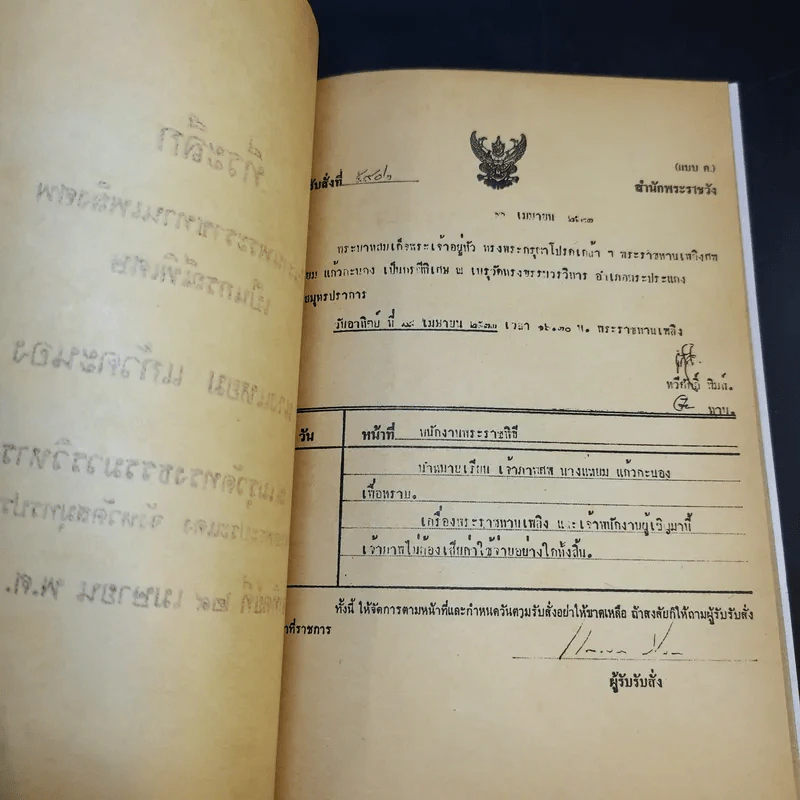 ที่ระลึก
พระราชทานเพลิงศพ
เป็นกรณีพิเศษ
นางแหยม แก้วคะนอง
เมรุวัดทรงธรรมวรวิหาร
จังหวัดสมุทรปรา
ที่ ๒๙ เมษายน พ.ศ.
(แบบ ค.)
รับสั่งที่
สำนักพระราชวัง
เมษายน ๒๕๓๓
พระบาทสมเด็จพระเจ้าอยู่หัว ทรงพระกรุณาโปรดเกล้า ฯ พระราชทานเพลิงศพ
แก้วคะนอง เป็นกรณีพิเศษ ณ เมรุวัดทรงธรรมวรวิหาร อำเภอพระประแดง
สมุทรปราการ
วันอาทิตย์ ที่ ๒๙ เมษายน ๒๕๓๓ เวลา ๑๖.๓๐ น. พระราชทานเพลิง
ทวีศักดิ์ พิมพ์.
ทาน.
วัน
หน้าที่ พนักงานพระราชพิธี
นำหมายเรียน เจ้าภาพศพ นางแหยม แก้วคะนอง
เพื่อทราบ.
เครื่องพระราชทานเพลิง และเจ้าพนักงานผู้เชิญมานี้
เจ้าภาพไม่ต้องเสียค่าใช้จ่ายอย่างใดทั้งสิ้น.
ทั้งนี้ ให้จัดการตามหน้าที่และกำหนดวันตามรับสั่งอย่าให้ขาดเหลือ ถ้าสงสัยก็ให้ถามผู้รับรับสั่ง
ที่ราชการ
ผู้รับรับสั่ง